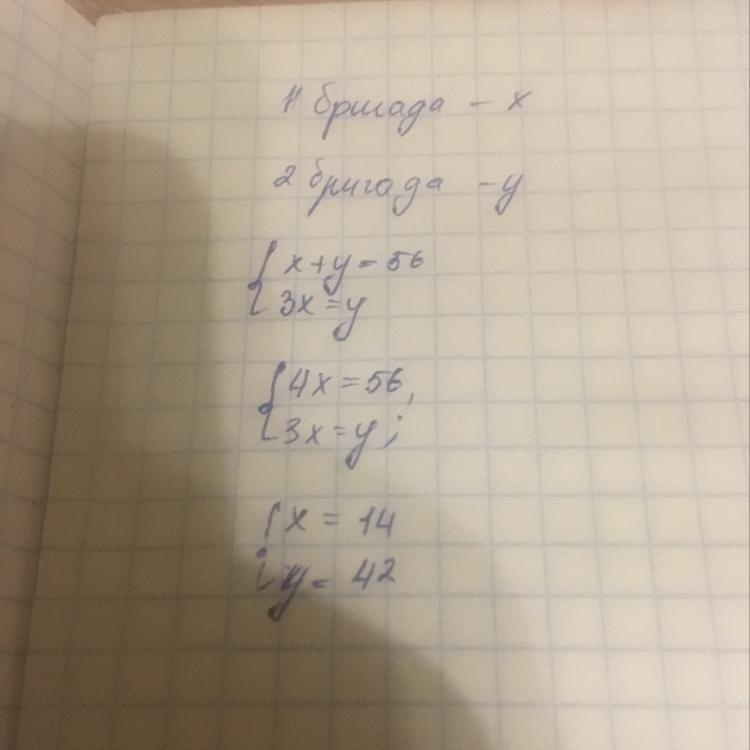 1 бригада - x
2 бригада - y
{ x + y = 56
3x = y
{ 4x = 56,
3x = y;
{ x = 14
y = 42